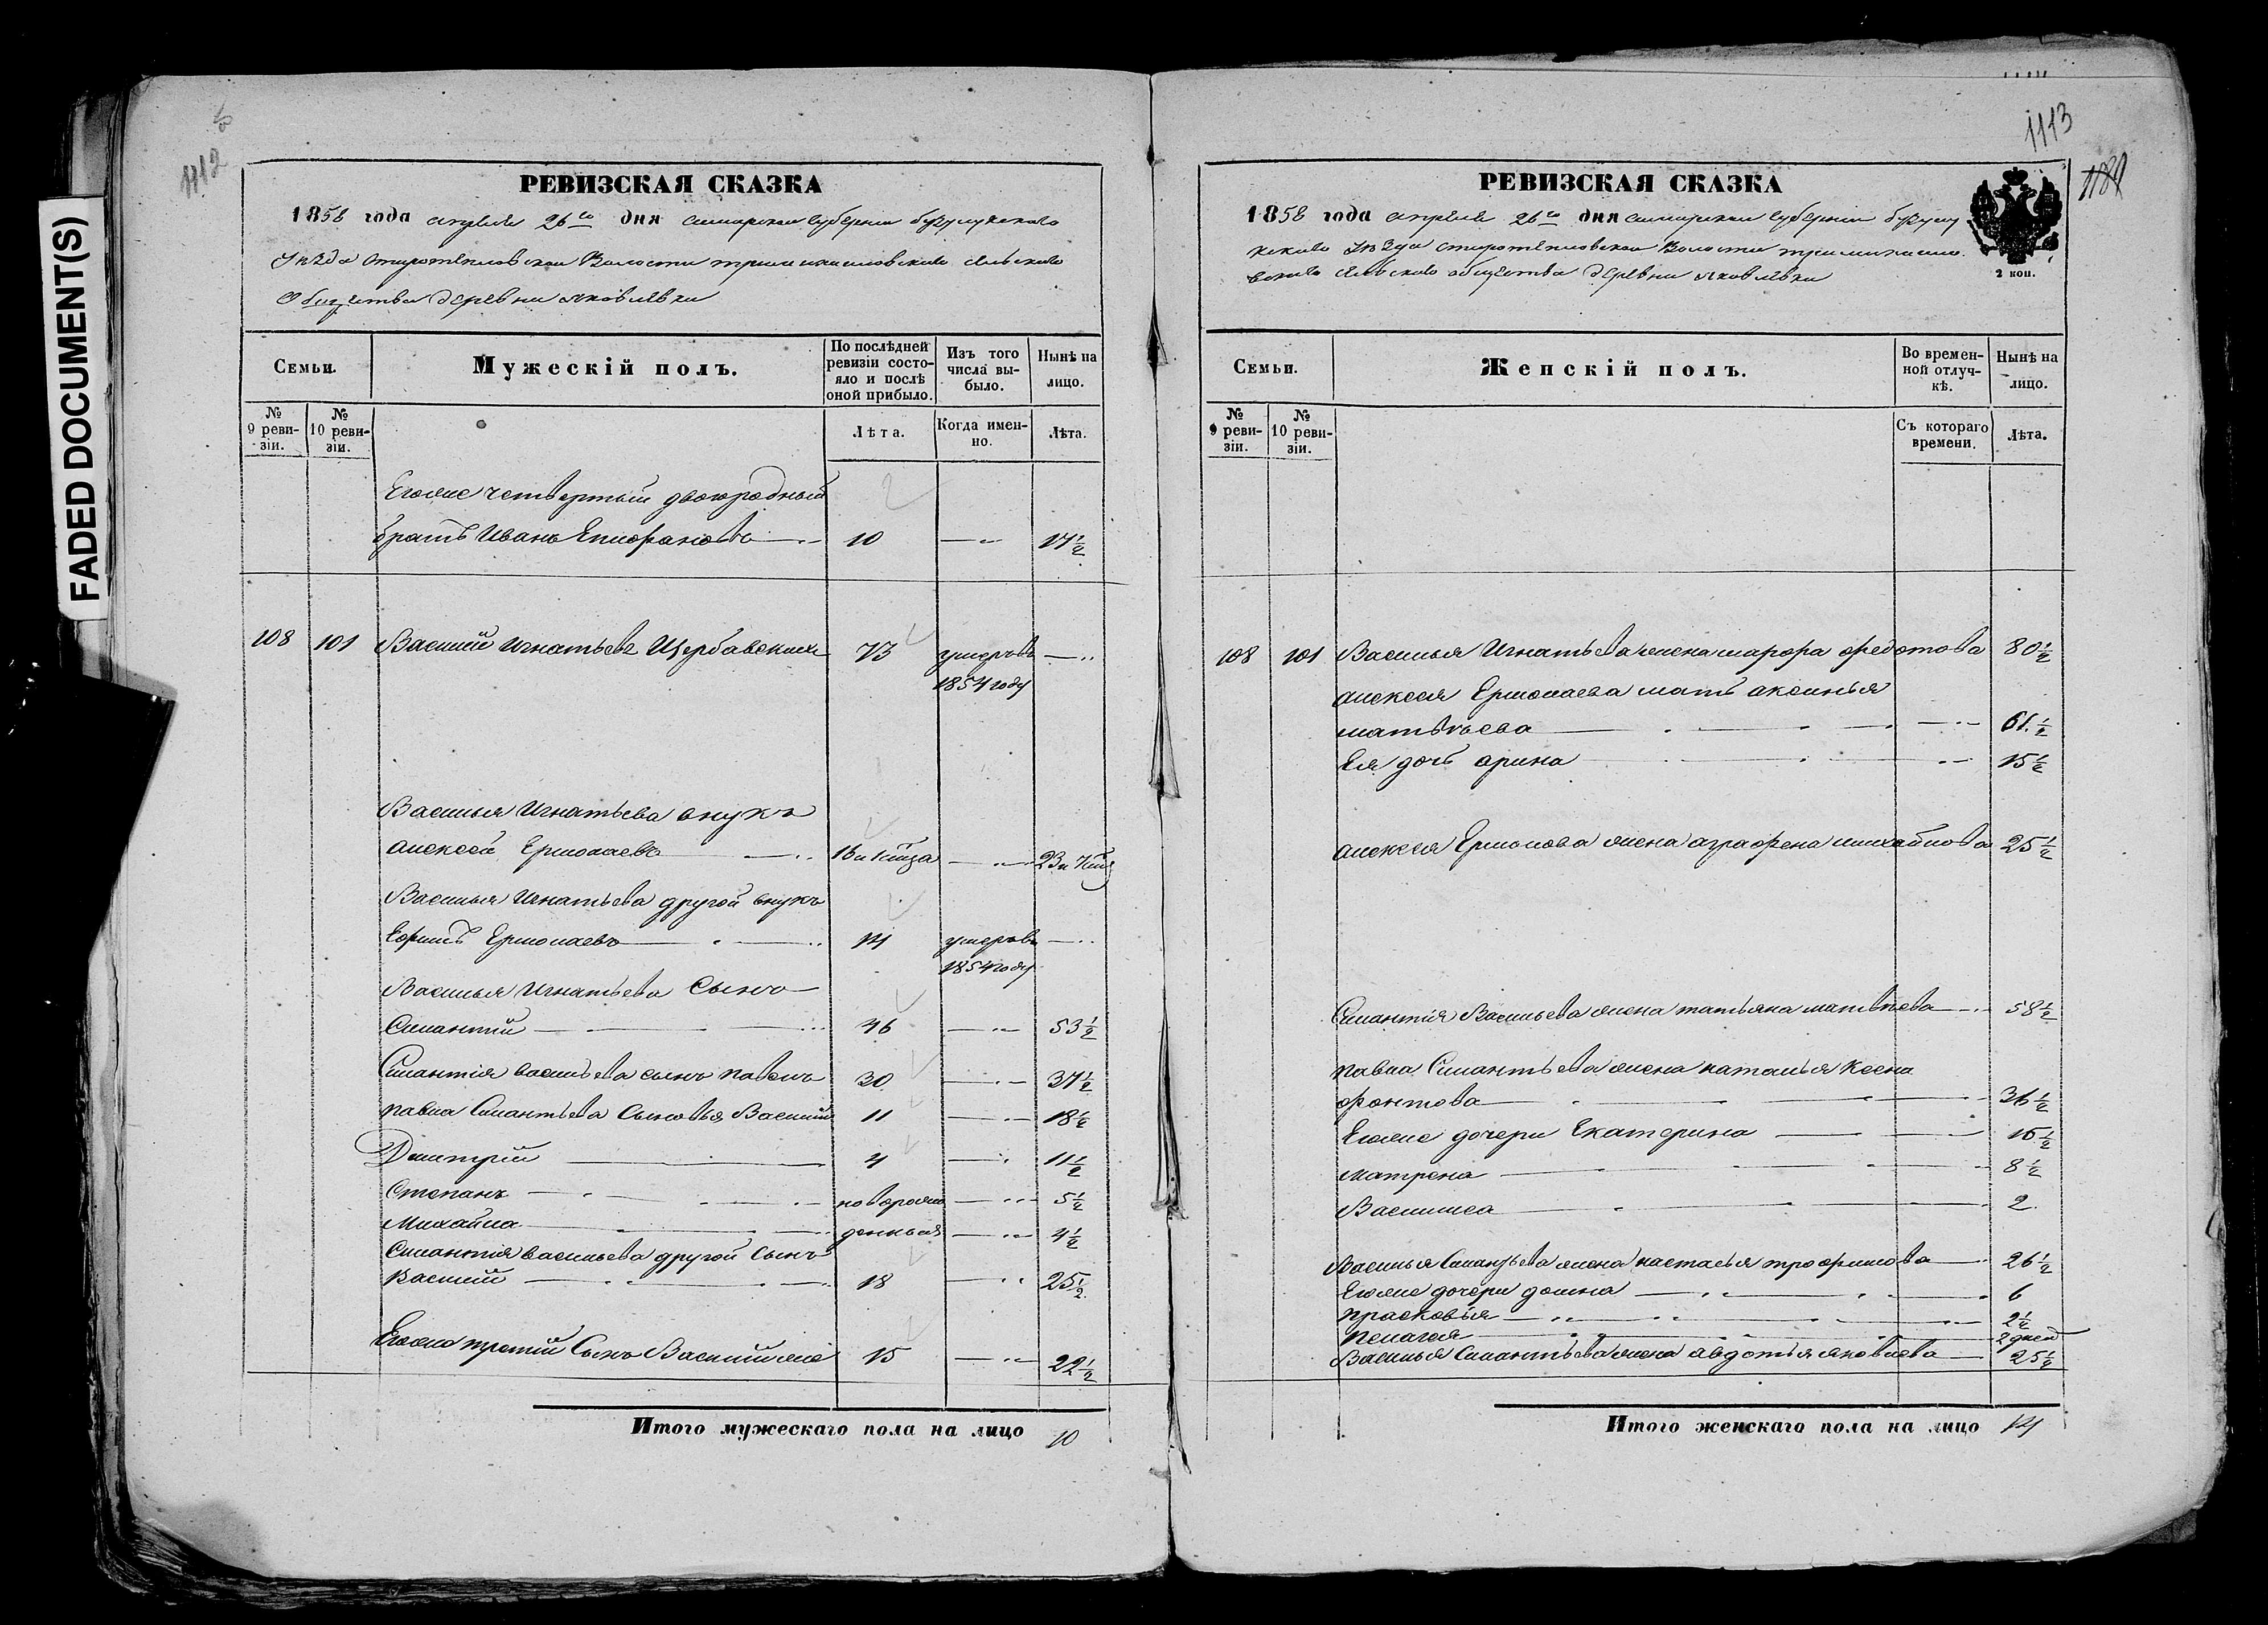 FADED DOCUMENT(S)
1112
РЕВИЗСКАЯ СКАЗКА
1858 года апреля 26го дня самарской губернии бузулукского
Уѣзда волости сельского
Общества деревни яковлевки
Семьи.
Мужескій полъ.
По послѣдней ревизіи состояло и послѣ оной прибыло.
Изъ того числа выбыло.
Нынѣ на лицо.
№ 9 ревизіи.
№ 10 ревизіи.
Лѣта.
Когда именно.
Лѣта.
Егоже четвертый двоюродный
братъ Иванъ Епифановъ 10 — 17½
108 101 Василий Игнатьевъ 73 умеръ въ —
1854 году
Василья Игнатьева внукъ
алексей Ермолаевъ — 23
Василья Игнатьева другой внукъ
Ефимъ Ермолаевъ 14 умеръ въ —
1854 году
Василья Игнатьева Сынъ
Силантий 46 — 53½
Силантія васильева сынъ павелъ 30 — 37½
павла Силантьева Сыновья Василий 11 — 18½
Дмитрий 4 — 11½
Степанъ новорож — 5½
Михайла денныя — 4½
Силантія васильева другой Сынъ
Василий 18 — 25½
Егоже третий Сынъ Василий же 15 — 22½
Итого мужескаго пола на лицо 10
1113
1189
РЕВИЗСКАЯ СКАЗКА
1858 года апреля 26го дня самарской губернии бузулу
кского Уѣзда волости
сельского общества деревни яковлевки
2 коп.
Семьи.
Женскій полъ.
Во временной отлучкѣ.
Нынѣ на лицо.
№ 9 ревизіи.
№ 10 ревизіи.
Съ котораго времени.
Лѣта.
108 101 Василья Игнатьева жена марфа федотова 80½
алексея Ермолаева мать аксинья
матвѣева 61½
Ея дочь арина 15½
алексея Ермолова жена аграфена михайлова 25½
Силантія Васильева жена татьяна матвѣева 58½
павла Силантьева жена наталья Ксена
фонтова 36½
Егоже дочери Екатерина 15½
матрена 8½
Василиса 2
Василья Силантьева жена настасья трофимова 26½
Егоже дочери домна 6
прасковья 2½
пелагея 2 дней
Василья Силантьева жена авдотья яковлева 25½
Итого женскаго пола на лицо 14